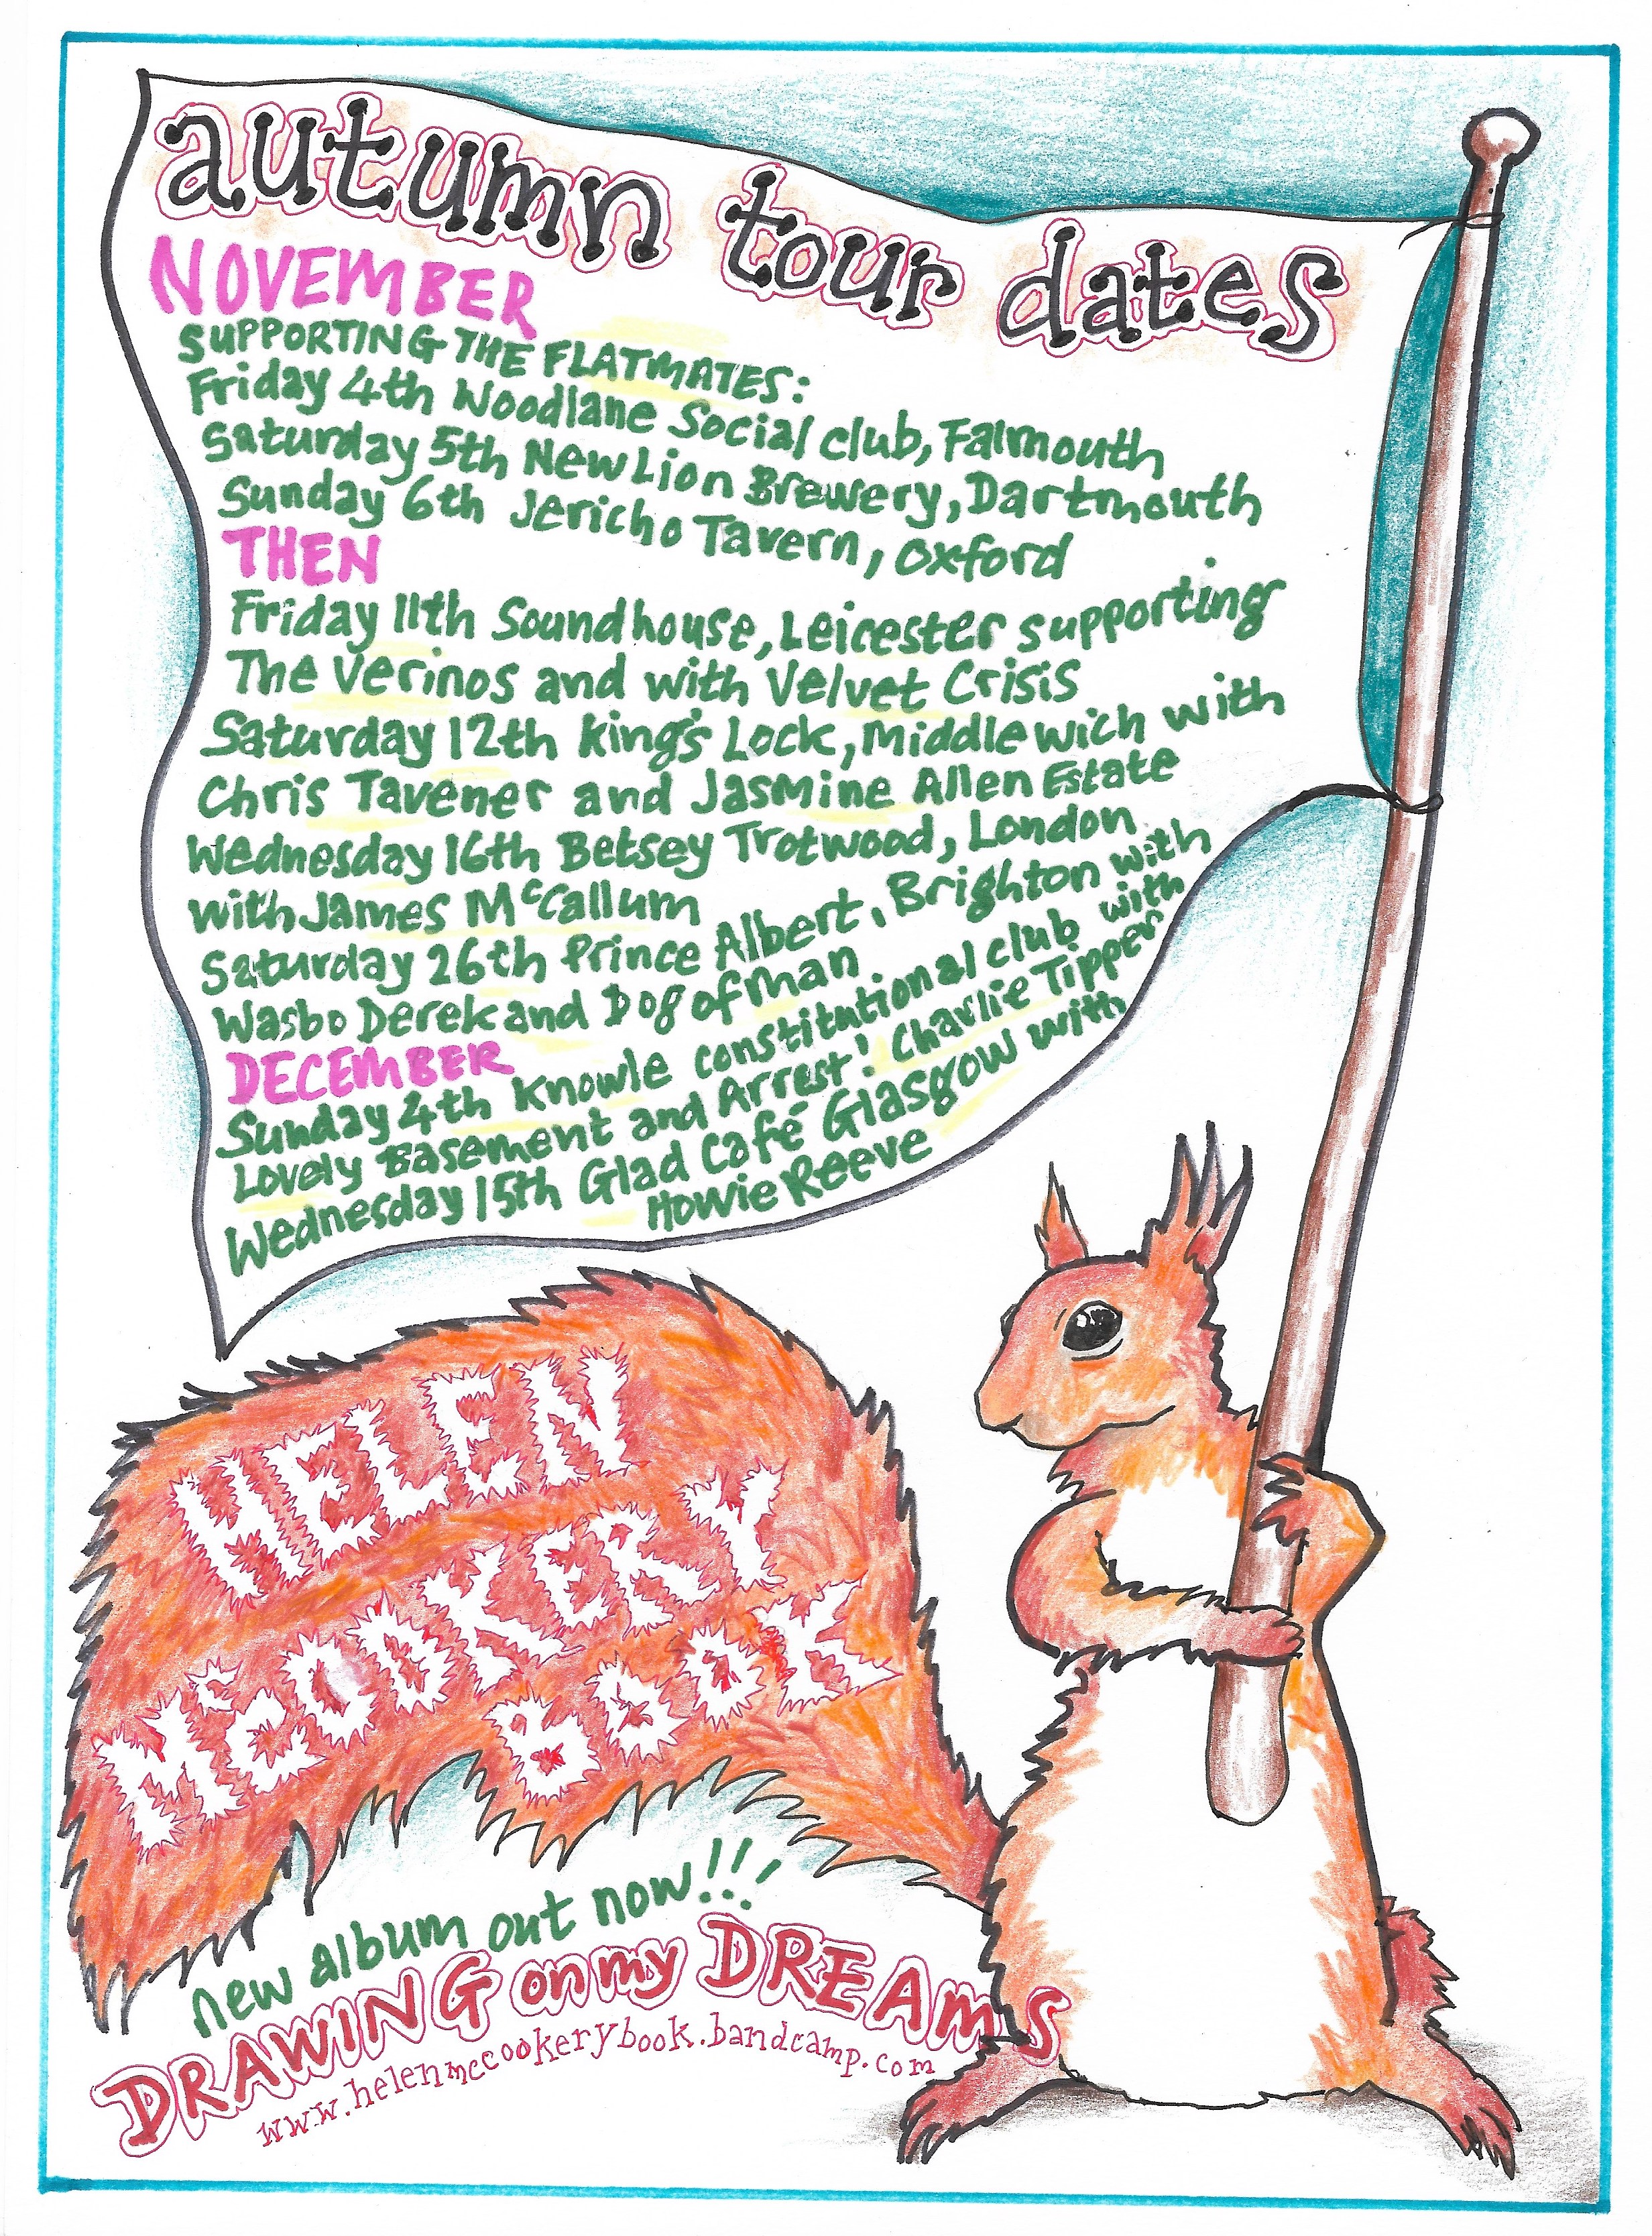 autumn tour dates
NOVEMBER
SUPPORTING THE FLATMATES:
Friday 4th Woodlane Social club, Falmouth
Saturday 5th New Lion Brewery, Dartmouth
Sunday 6th Jericho Tavern, Oxford
THEN
Friday 11th Soundhouse, Leicester supporting
The Verinos and with Velvet Crisis
Saturday 12th King's Lock, Middlewich with
Chris Tavener and Jasmine Allen Estate
Wednesday 16th Betsey Trotwood, London
with James McCallum
Saturday 26th Prince Albert, Brighton with
Wasbo Derek and Dog of Man.
DECEMBER
Sunday 4th Knowle constitutional club with
Lovely Basement and Arrest! Charlie Tipper
Wednesday 15th Glad Café Glasgow with
Howie Reeve
HELEN
McCOOKERY
BOOK
new album out now!!!
DRAWING on my DREAMS
www.helenmccookerybook.bandcamp.com